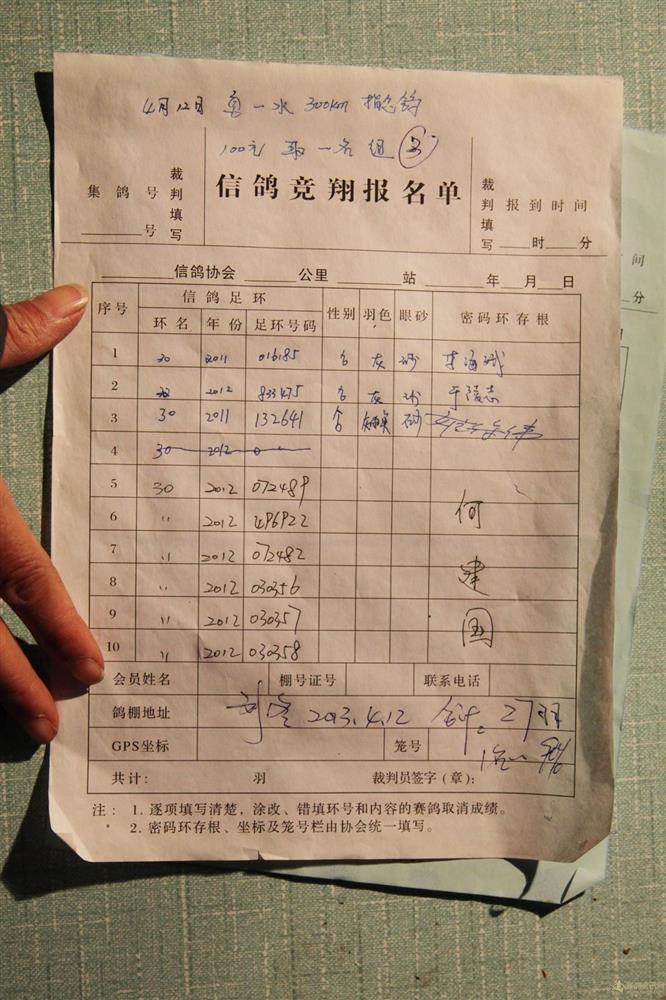 4月12日 一水 300km 指定鸽
100元 取一名组 ③
集鸽号 裁判填写 信鸽竞翔报名单 裁判填写 报到时间
号 时 分
信鸽协会 公里 站 年 月 日
序号 信鸽足环 性别 羽色 眼砂 密码环存根
环名 年份 足环号码
1 30 2011 016185 灰 砂 李海斌
2 30 2012 833475 灰 砂
3 30 2011 132641 砂
4 30 2012 0
5 30 2012 072489
6 〃 2012 496922 何
7 〃 2012 072482
8 〃 2012 030356 建
9 〃 2012 030357 国
10 〃 2012 030358
会员姓名 棚号证号 联系电话
鸽棚地址 2013.4.12 27羽
GPS坐标 笼号
共计： 羽 裁判员签字（章）：
注：1. 逐项填写清楚，涂改、错填环号和内容的赛鸽取消成绩。
2. 密码环存根、坐标及笼号栏由协会统一填写。
间
分